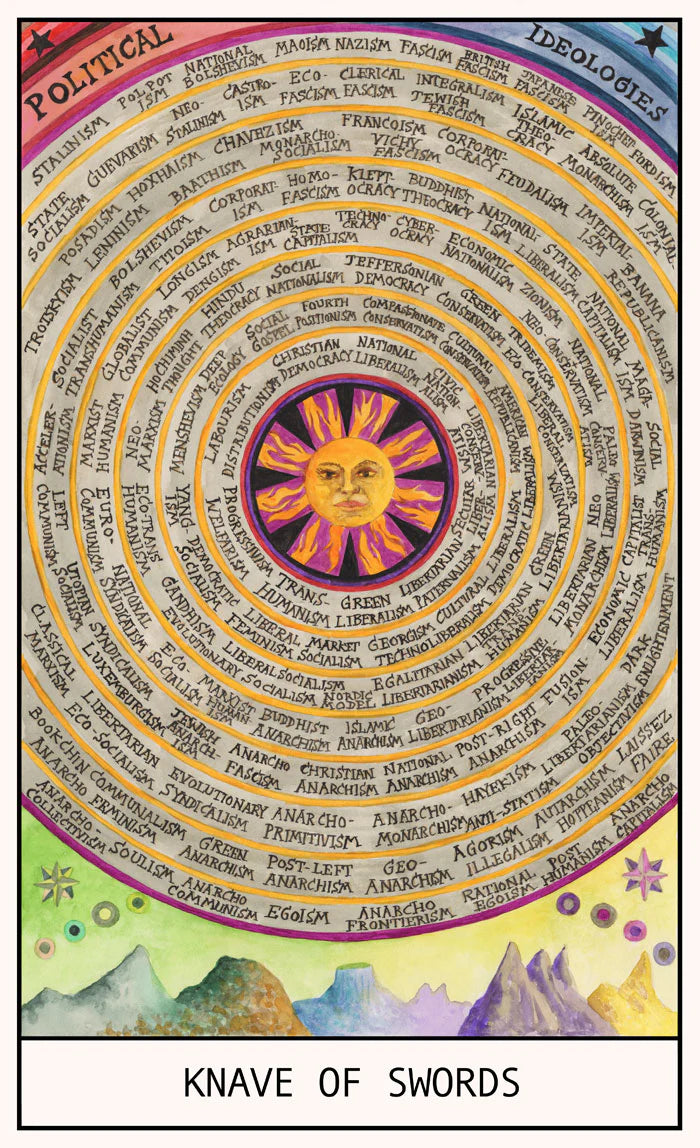 POLITICAL
IDEOLOGIES
STALINISM
POL POT
ISM
NATIONAL
BOLSHEVISM
MAOISM
NAZISM
FASCISM
BRITISH
FASCISM
JAPANESE
FASCISM
PINOCHET
ISM
FORDISM
STATE
SOCIALISM
GUEVARISM
NEO-
STALINISM
CASTRO-
ISM
ECO-
FASCISM
CLERICAL
FASCISM
INTEGRALISM
JEWISH
FASCISM
ISLAMIC
THEO
CRACY
ABSOLUTE
MONARCHISM
COLONIAL
ISM
TROTSKYISM
POSADISM
HOXHAISM
CHAVEZISM
MONARCHO-
SOCIALISM
FRANCOISM
VICHY
FASCISM
CORPORAT-
OCRACY
FEUDALISM
IMPERIAL-
ISM
BANANA
REPUBLICANISM
LENINISM
BAATHISM
CORPORAT-
ISM
HOMO-
FASCISM
KLEPT
OCRACY
BUDDHIST
THEOCRACY
NATIONAL-
LIBERALISM
STATE
CAPITALISM
NATIONAL
ISM
MAGA-
ISM
SOCIALIST
TRANSHUMANISM
BOLSHEVISM
TITOISM
LONGISM
DENGISM
AGRARIAN-
ISM
STATE
CAPITALISM
TECHNO-
CRACY
CYBER-
OCRACY
ECONOMIC
NATIONALISM
ZIONISM
GLOBALIST
COMMUNISM
HOCHIMINH
THOUGHT
HINDU
THEOCRACY
SOCIAL
NATIONALISM
JEFFERSONIAN
DEMOCRACY
GREEN
CONSERVATISM
TRIDEMISM
NEO CONSERVATISM
ECO CONSERVATISM
DEEP
ECOLOGY
SOCIAL
GOSPEL
FOURTH
POSITIONISM
COMPASSIONATE
CONSERVATISM
CULTURAL
CONSERVATISM
AMERICAN
REPUBLICANISM
LIBERAL
CONSERVATISM
CHRISTIAN
DEMOCRACY
NATIONAL
LIBERALISM
CIVIC
NATION
ALISM
LIBERTARIAN
CONSERV
ATISM
SECULAR
LIBER-
ALISM
LIBERTARIAN
PATERNALISM
GREEN
LIBERALISM
TRANS-
HUMANISM
PROGRESSIVISM
WELFARISM
DISTRIBUTIONISM
LABOURISM
MENSHEVISM
NEO-
MARXISM
MARXIST
HUMANISM
ACCELER-
ATIONISM
LEFT
COMMUNISM
EURO-
COMMUNISM
ECO-TRANS
HUMANISM
YANG
ISM
DEMOCRATIC
SOCIALISM
LIBERAL
FEMINISM
MARKET
SOCIALISM
GEORGISM
TECHNOLIBERALISM
CULTURAL
LIBERALISM
DEMOCRATIC LIBERALISM
PALEO
CONSERV
DARWINISM
SOCIAL
CAPITALIST
TRANS-
HUMANISM
NEO
LIBERALISM
LIBERTARIAN
MONARCHISM
ECONOMIC
LIBERALISM
DARK
ENLIGHTENMENT
GANDHEISM
EVOLUTIONARY SOCIALISM
LIBERAL SOCIALISM
NORDIC
MODEL
EGALITARIAN
LIBERTARIANISM
LIBERTARIAN
HUMANISM
GREEN
LIBERTARIANISM
NATIONAL
SYNDICALISM
ECO-
SOCIALISM
MARXIST
HUMAN-
ISM
BUDDHIST
ANARCHISM
ISLAMIC
ANARCHISM
GEO-
LIBERTARIANISM
PROGRESSIVE
LIBERTAR
IANISM
UTOPIAN
SOCIALISM
SYNDICALISM
LUXEMBURGISM
JEWISH
ANARCH-
ISM
ANARCHO
FASCISM
CHRISTIAN
ANARCHISM
NATIONAL
ANARCHISM
POST-RIGHT
ANARCHISM
FUSION-
ISM
PALEO-
LIBERTARIANISM
OBJECTIVISM
CLASSICAL
MARXISM
LIBERTARIAN
ECO SOCIALISM
EVOLUTIONARY
SYNDICALISM
ANARCHO-
PRIMITIVISM
ANARCHO-
MONARCHISM
HAYEKISM
ANTI-STATISM
AUTARCHISM
HOPPEANISM
LAISSEZ
FAIRE
BOOKCHIN COMMUNALISM
ANARCHO FEMINISM
GREEN
ANARCHISM
POST-LEFT
ANARCHISM
GEO-
ANARCHISM
AGORISM
ILLEGALISM
POST
HUMANISM
ANARCHO
CAPITALISM
ANARCHO-
COLLECTIVISM
SOULISM
ANARCHO
COMMUNISM
EGOISM
ANARCHO
FRONTIERISM
RATIONAL
EGOISM
KNAVE OF SWORDS